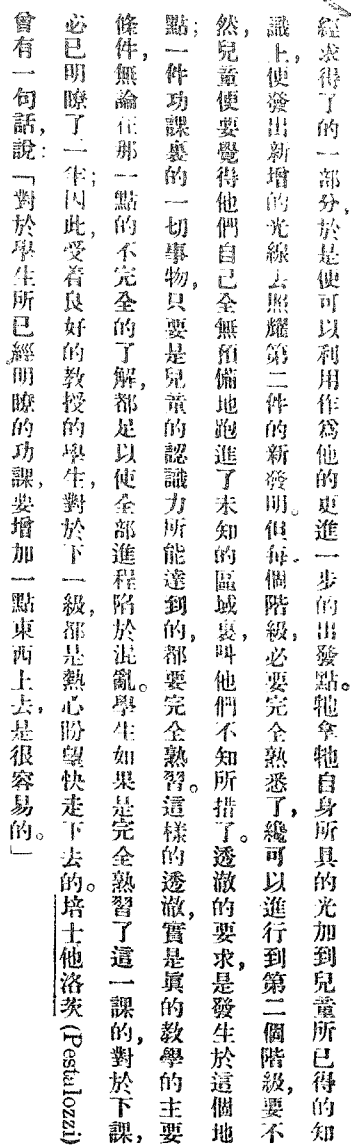 經求得了的一部分,於是便可以利用作爲他的更進一步的出發點。牠拿牠自身所具的光加到兒童所已得的知
識上,便發出新增的光線去照耀第二件的新發明。但每個階級,必要完全熟悉了,纔可以進行到第二個階級,要不
然,兒童便要覺得他們自己全無預備地跑進了未知的區域裏,叫他們不知所措了。透澈的要求,是發生於這個地
點;一件功課裏的一切事物,只要是兒童的認識力所能達到的,都要完全熟習。這樣的透澈,實是眞的教學的主要
條件,無論在那一點的不完全的了解,都足以使全部進程陷於混亂。學生如果是完全熟習了這一課的,對於下課,
必已明瞭了一半;因此,受着良好的教授的學生,對於下一級,都是熱心盼望快走下去的。培士他洛茨(Pestalozzi)
曾有一句話,說:「對於學生所已經明瞭的功課,要增加一點東西上去,是很容易的。」